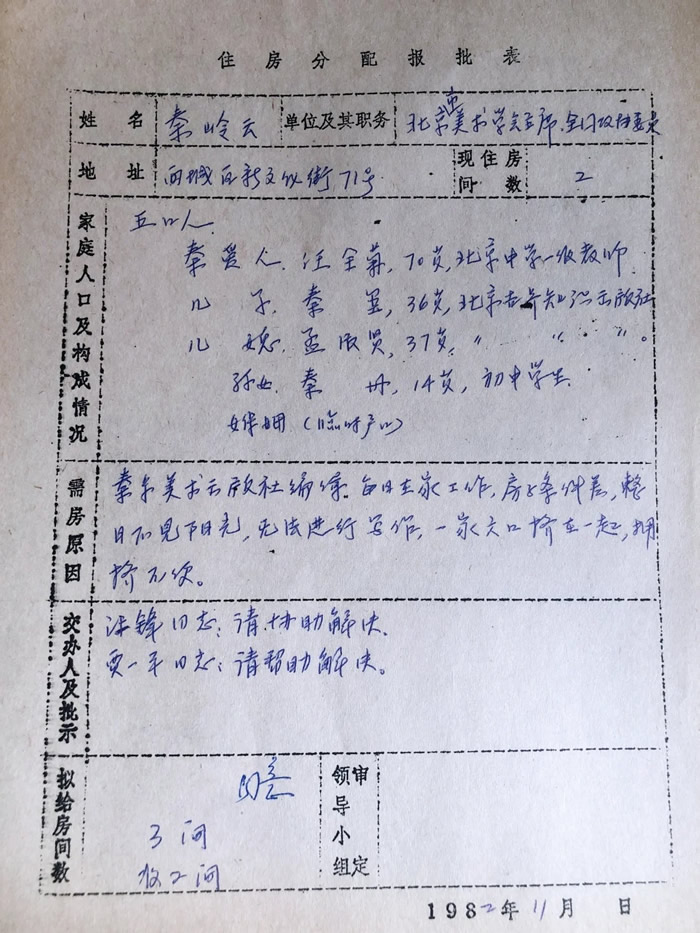 住房分配报批表
姓名 秦岭云 单位及其职务 北京市美术学会主席、全门政协委员
地址 西城区新文化街71号 现住房间数 2
家庭人口及构成情况
五口人.
秦爱人. 汪全, 70岁, 北京中学一级教师.
儿子. 秦, 36岁, 北京世界知识出版社
儿媳. 孟淑贤, 37岁, 〃 〃 〃 。
孙女. 秦丹, 14岁, 初中学生
保姆 (临时户口)
需房原因
秦系美术出版社编审. 每日在家工作, 房子条件差, 整
日不见阳光, 无法进行写作, 一家六口挤在一起, 拥
挤不便。
交办人及批示
锋同志: 请协助解决.
贾一平同志: 请帮助解决。
拟给房间数
同意
3间
收2间
领导小组审定
1982年11月 日